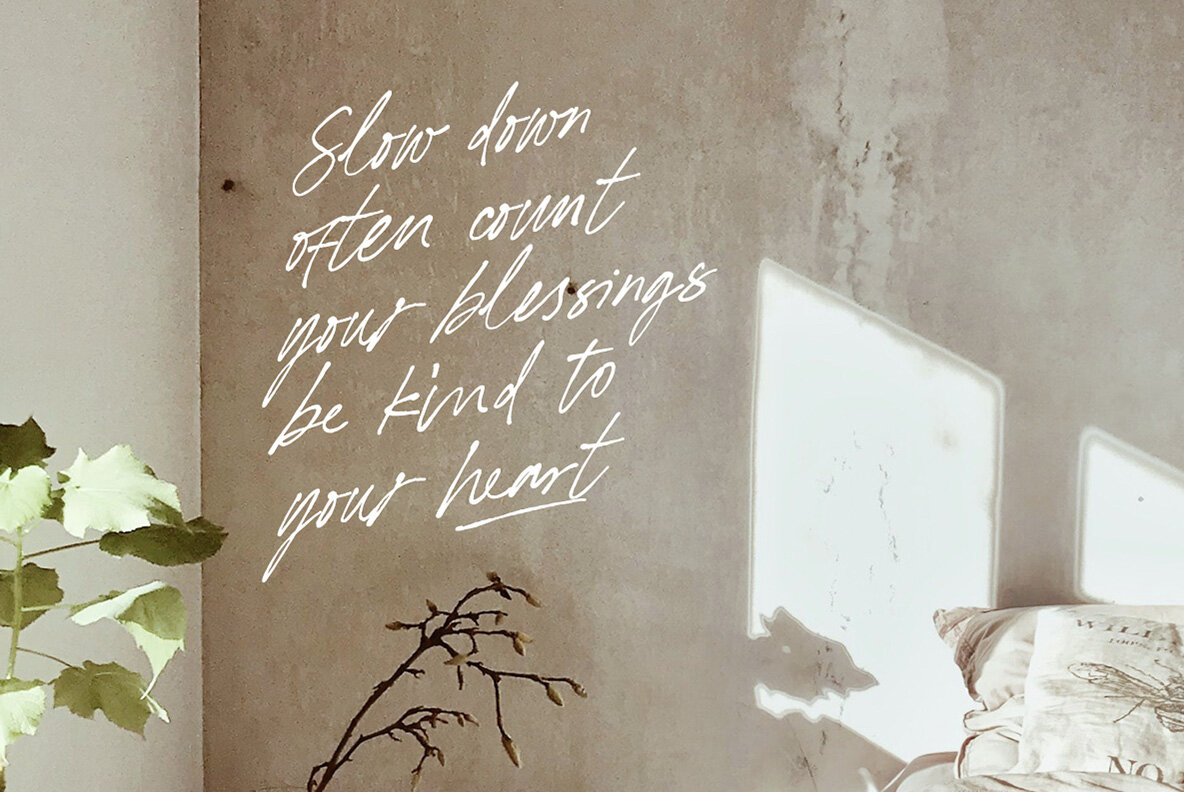 Slow down
often count
your blessings
be kind to
your heart
100%
NO